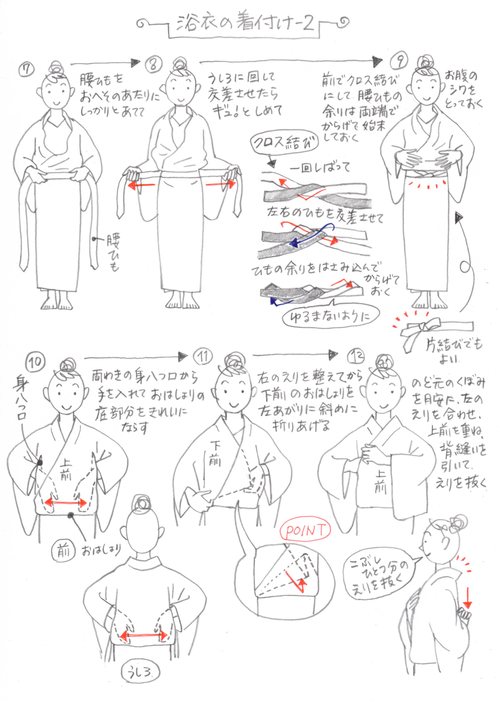 浴衣の着付け-2
⑦
腰ひもを
おへそのあたりに
しっかりとあてて
腰ひも
⑧
うしろに回して
交差させたら
ギュッとしめて
⑨
前でクロス結び
にして 腰ひもの
余りは両端で
からげて始末
しておく
お腹の
シワを
とっておく
クロス結び
一回しばって
左右のひもを交差させて
ひもの余りをはさみ込んで
からげて
おく
ゆるまないように
片結びでも
よい
⑩
身八つ口
両わきの身八つ口から
手を入れておはしょりの
底部分をきれいに
ならす
上前
前
おはしょり
うしろ
⑪
右のえりを整えてから
下前のおはしょりを
左あがりに斜めに
折りあげる
下前
POINT
⑫
のど元のくぼみ
を目安に、左の
えりを合わせ、
上前を重ね、
背縫いを
引いて、
えりを抜く
上前
こぶし
ひとつ分の
えりを抜く